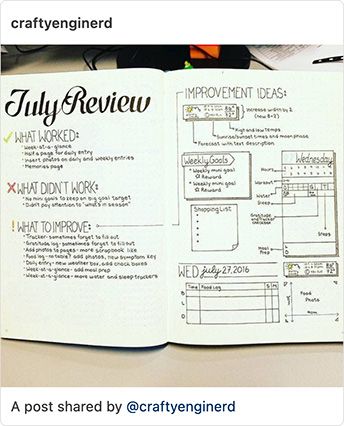 craftyenginerd
July Review
WHAT WORKED:
• Week-at-a-glance
• Half a page for daily entry
• Insert photos on daily and weekly entries
• Memories page
WHAT DIDN'T WORK:
• No mini goals to keep on big goal target
• Didn't pay attention to "what's in season"
WHAT TO IMPROVE:
• Tracker- sometimes forget to fill out
• Gratitude log - sometimes forget to fill out
• Add photos to pages - more scrapbook like
• Food log - no table? add photos, new symptom key
• Daily entry - new weather box, add check boxes
• Week-at-a-glance - add meal prep
• Week-at-a-glance - more water and sleep trackers
IMPROVEMENT IDEAS:
Increase width by 2
(now 8×2)
High and low temps
Sunrise/sunset times and moon phase
Forecast with text description
Weekly Goals
• Weekly mini goal
Reward
• Weekly mini goal
Reward
Shopping List
Wednesday
Hours
Workout
Water
Sleep
Gratitude and Tracker checkbox
Meal Prep
WED July 27, 2016
Time
Food Log
S
M
B
L
D
Food
Photo
Mom
A post shared by @craftyenginerd